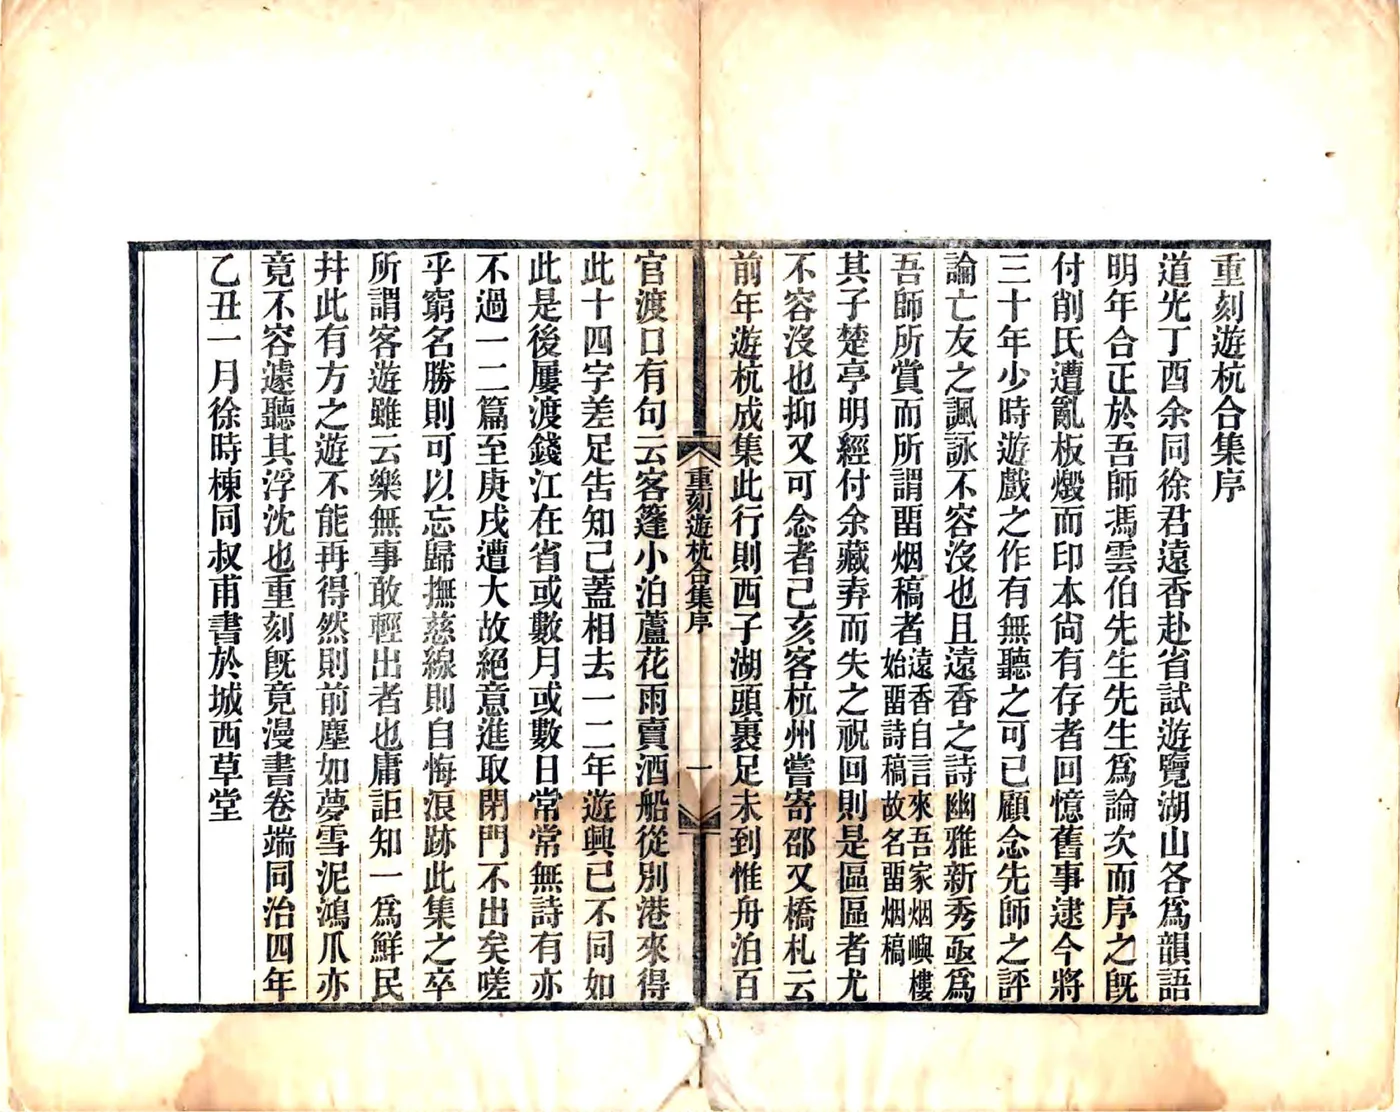 重刻遊杭合集序
道光丁酉余同徐君遠香赴省試遊覽湖山各爲韻語
明年合正於吾師馮雲伯先生先生爲論次而序之旣
付削氏遭亂板燬而印本尙有存者回憶舊事逮今將
三十年少時遊戲之作有無聽之可已顧念先師之評
論亡友之諷詠不容沒也且遠香之詩幽雅新秀亟爲
吾師所賞而所謂畱烟稿者遠香自言來吾家烟嶼樓
始畱詩稿故名畱烟稿
其子楚亭明經付余藏弆而失之祝回則是區區者尤
不容沒也抑又可念者己亥客杭州嘗寄邵又橋札云
前年遊杭成集此行則西子湖頭裹足未到惟舟泊百
重刻遊杭合集序
一
官渡口有句云客篷小泊蘆花雨賣酒船從別港來得
此十四字差足吿知己蓋相去一二年遊興已不同如
此是後屢渡錢江在省或數月或數日常常無詩有亦
不過一二篇至庚戌遭大故絕意進取閉門不出矣嗟
乎窮名勝則可以忘歸撫慈線則自悔浪跡此集之卒
所謂客遊雖云樂無事敢輕出者也庸詎知一爲鮮民
幷此有方之遊不能再得然則前塵如夢雪泥鴻爪亦
竟不容遽聽其浮沈也重刻旣竟漫書卷端同治四年
乙丑一月徐時棟同叔甫書於城西草堂